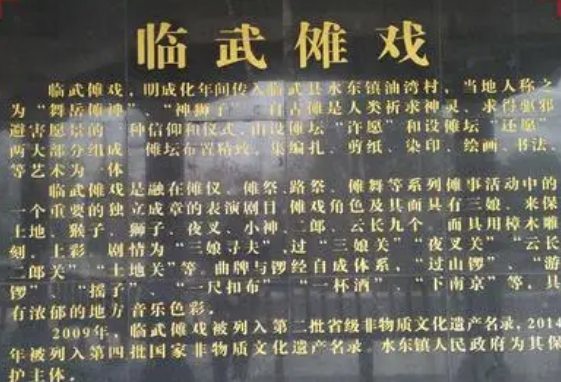 临武傩戏
临武傩戏，明成化年间传入临武县水东镇油湾村，当地人称之
为“舞岳傩神”、“神狮子”。自古傩是人类祈求神灵、求得驱邪
避害愿景的一种信仰和仪式，由设傩坛“许愿”和设傩坛“还愿”
两大部分组成 傩坛布置精致，集编扎、剪纸、染印、绘画、书法、
等艺术为一体
临武傩戏是融在傩仪、傩祭、路祭、傩舞等系列傩事活动中的
一个重要的独立成章的表演剧目 傩戏角色及其面具有三娘、来保
土地、猴子、狮子、夜叉、小神、二郎、云长九个 面具用樟木雕
刻、上彩 剧情为“三娘寻夫”、过“三娘关”“夜叉关”“云长
二郎关”“土地关”等。曲牌与锣经自成体系，“过山锣”、“游
锣”、“摇子”、“一尺扣布”、“一杯酒”、“下南京”等，具
有浓郁的地方音乐色彩。
2009年，临武傩戏被列入第二批省级非物质文化遗产名录，2014
年被列入第四批国家非物质文化遗产名录。水东镇人民政府为其保
护主体。